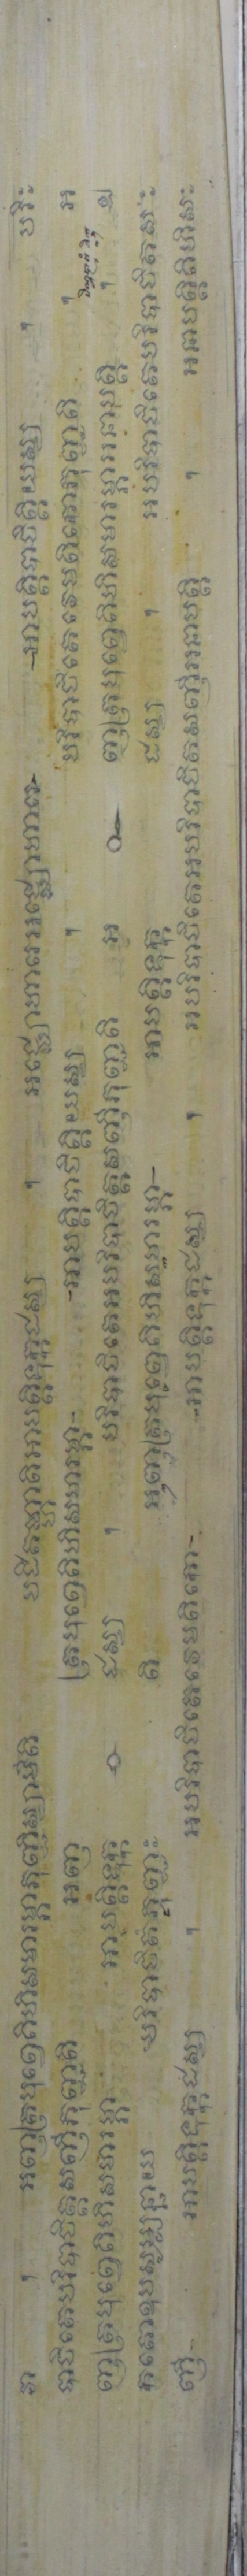 វា ។ អញ្ញត្របុព្វេគិហិសមារម្ភាភុញ្ជិស្សាមីតិ បដិគណ្ហាតិអាបត្តិទុក្កដស្ស ។ អជ្ឈោហារេអជ្ឈោហារេ អាបត្តិបាចិត្តិយស្ស ។ បរិ
បាចិតេបរិបាចិត្តសញ្ញីភុញ្ជតិ អញ្ញ ត្របុព្វេគិហិសមារម្ភា អាបត្តិបាចិត្តិយស្ស ។ បរិបាចិតេវេមតិកោភុញ្ជតិ ។ អ
ញ្ញត្របុព្វេគិហិសមារម្ភា អាបត្តិទុក្ក ដស្ស ។ បរិបាចិតេអបរិបាចិត្តសញ្ញីភុញ្ជតិ អ ញ្ញត្របុព្វេគិហិសមារម្ភាអនាបត្តិ ។ ឯ
កតោឧបសម្បន្នាយ បរិបាចិតំភុញ្ជ តិ អញ្ញត្របុព្វេគិហិសមារម្ភា អាបត្តិទុក្ក ដស្ស ។ អបរិបាចិតេបរិបាចិតស
ញ្ញី អាបត្តិទុក្កដស្ស ។ អបរិបាចិតេវេមតិកោ អាបត្តិទុក្កដស្ស ។ អបរិបាចិតេអបរិបាចិតសញ្ញីអនាបត្តិ ។ អនាបត្តិគិហិស